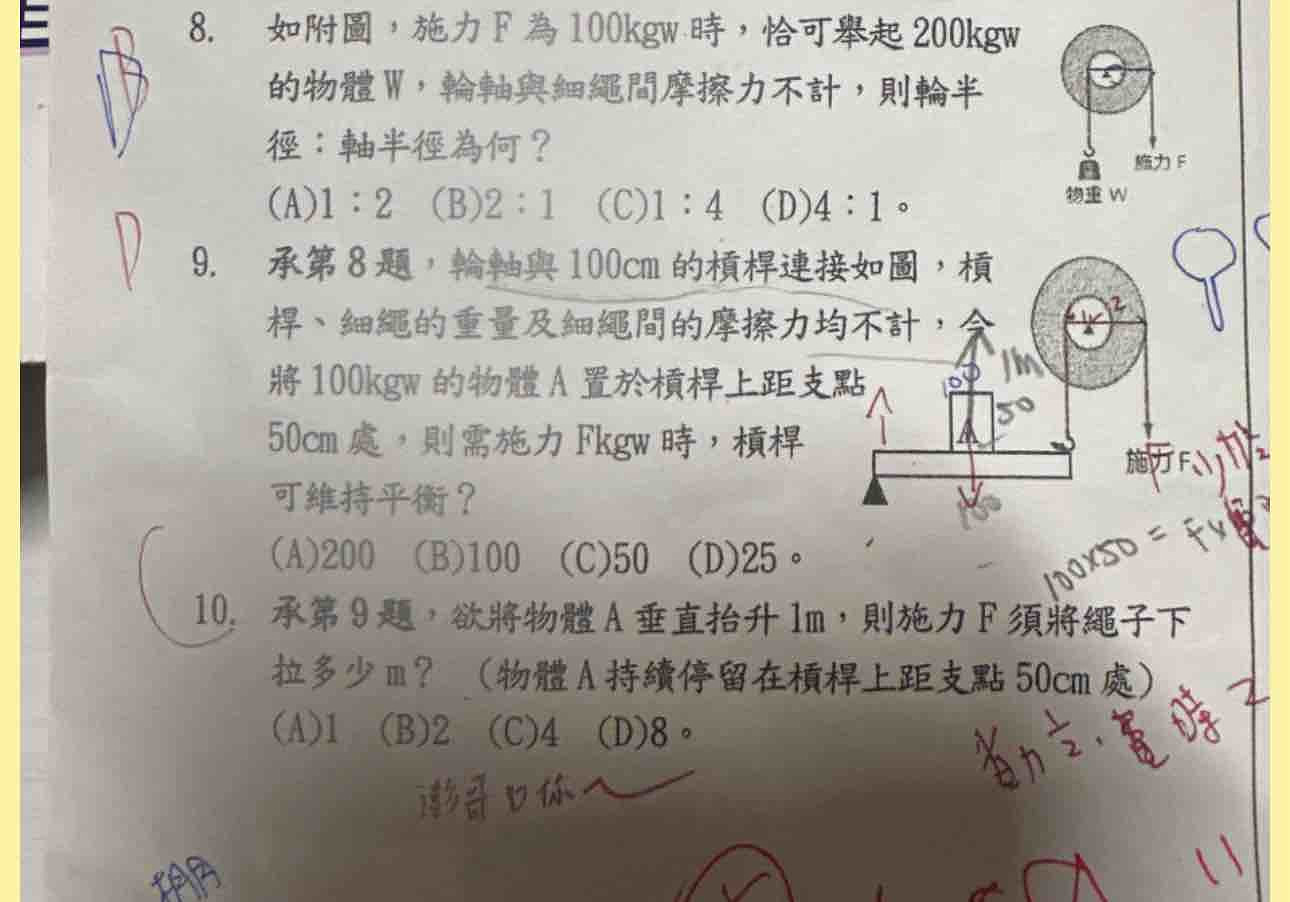 8. 如附圖，施力 F 為 100kgw 時，恰可舉起 200kgw
的物體 W，輪軸與細繩間摩擦力不計，則輪半
徑：軸半徑為何？
(A)1：2 (B)2：1 (C)1：4 (D)4：1。
施力 F
物重 W
B
D
9. 承第 8 題，輪軸與 100cm 的槓桿連接如圖，槓
桿、細繩的重量及細繩間的摩擦力均不計，今
將 100kgw 的物體 A 置於槓桿上距支點
50cm 處，則需施力 Fkgw 時，槓桿
可維持平衡？
(A)200 (B)100 (C)50 (D)25。
2
1m
100
50
A
施力 F
100
100×50 = F×
10. 承第 9 題，欲將物體 A 垂直抬升 1m，則施力 F 須將繩子下
拉多少 m？ （物體 A 持續停留在槓桿上距支點 50cm 處）
(A)1 (B)2 (C)4 (D)8。
C
省力 1/2，
2